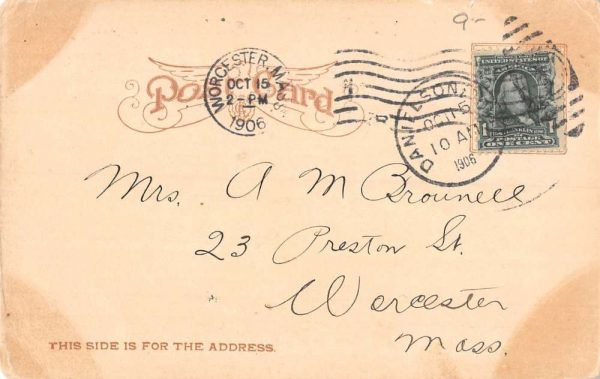 9-
Post Card
WORCESTER, MASS.
OCT 15
2-PM
1906
DANIELSON,
OCT 15
10 AM
1906
UNITED STATES OF
FRANKLIN
POSTAGE
1 ONE CENT 1
Mrs. A M Brownell
23 Preston St.
Worcester
Mass.
THIS SIDE IS FOR THE ADDRESS.